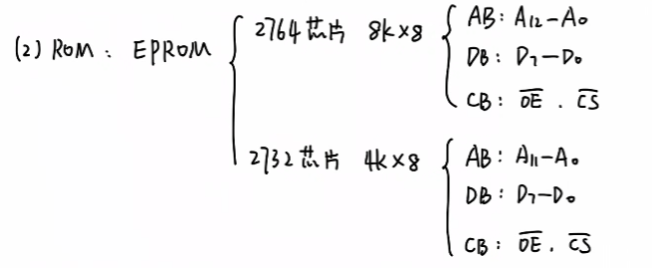 (2) ROM: EPROM
2764芯片 8K×8
AB: A₁₂-A₀
DB: D₇-D₀
CB: O̅E̅. C̅S̅
2732芯片 4K×8
AB: A₁₁-A₀
DB: D₇-D₀
CB: O̅E̅. C̅S̅